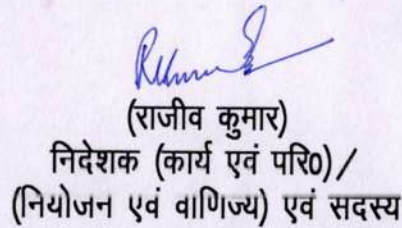 (राजीव कुमार)
निदेशक (कार्य एवं परि0)/
(नियोजन एवं वाणिज्य) एवं सदस्य